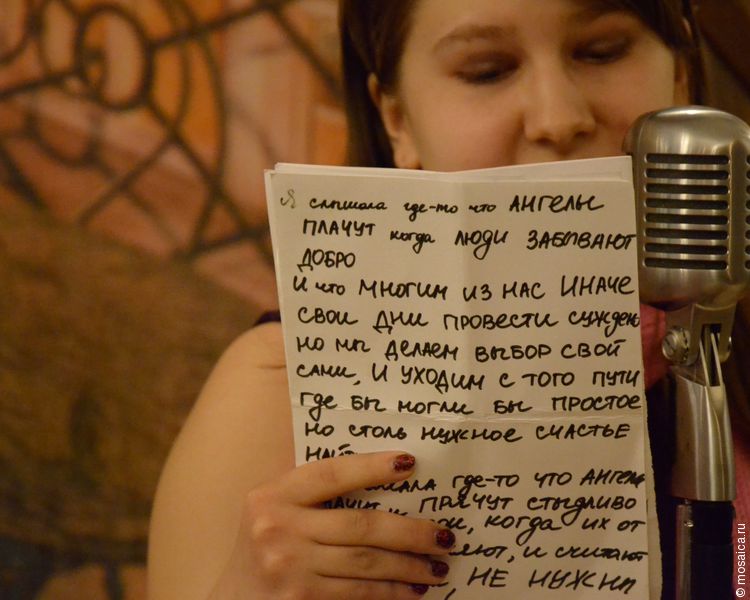 Я слышала где-то что АНГЕЛЫ
ПЛАЧУТ когда ЛЮДИ ЗАБЫВАЮТ
ДОБРО
И что МНОГИМ ИЗ НАС ИНАЧЕ
СВОИ ДНИ ПРОВЕСТИ СУЖДЕНО
НО МЫ ДЕЛАЕМ ВЫБОР СВОЙ
САМИ, И УХОДИМ С ТОГО ПУТИ
ГДЕ БЫ МОГЛИ БЫ ПРОСТОЕ
НО СТОЛЬ НУЖНОЕ СЧАСТЬЕ
ГДЕ-ТО ЧТО АНГЕЛЫ
ПРЯЧУТ СТЫДЛИВО
КОГДА ИХ ОТ
И СЧИТАЮТ
НЕ НУЖНЫ
© mosaica.ru